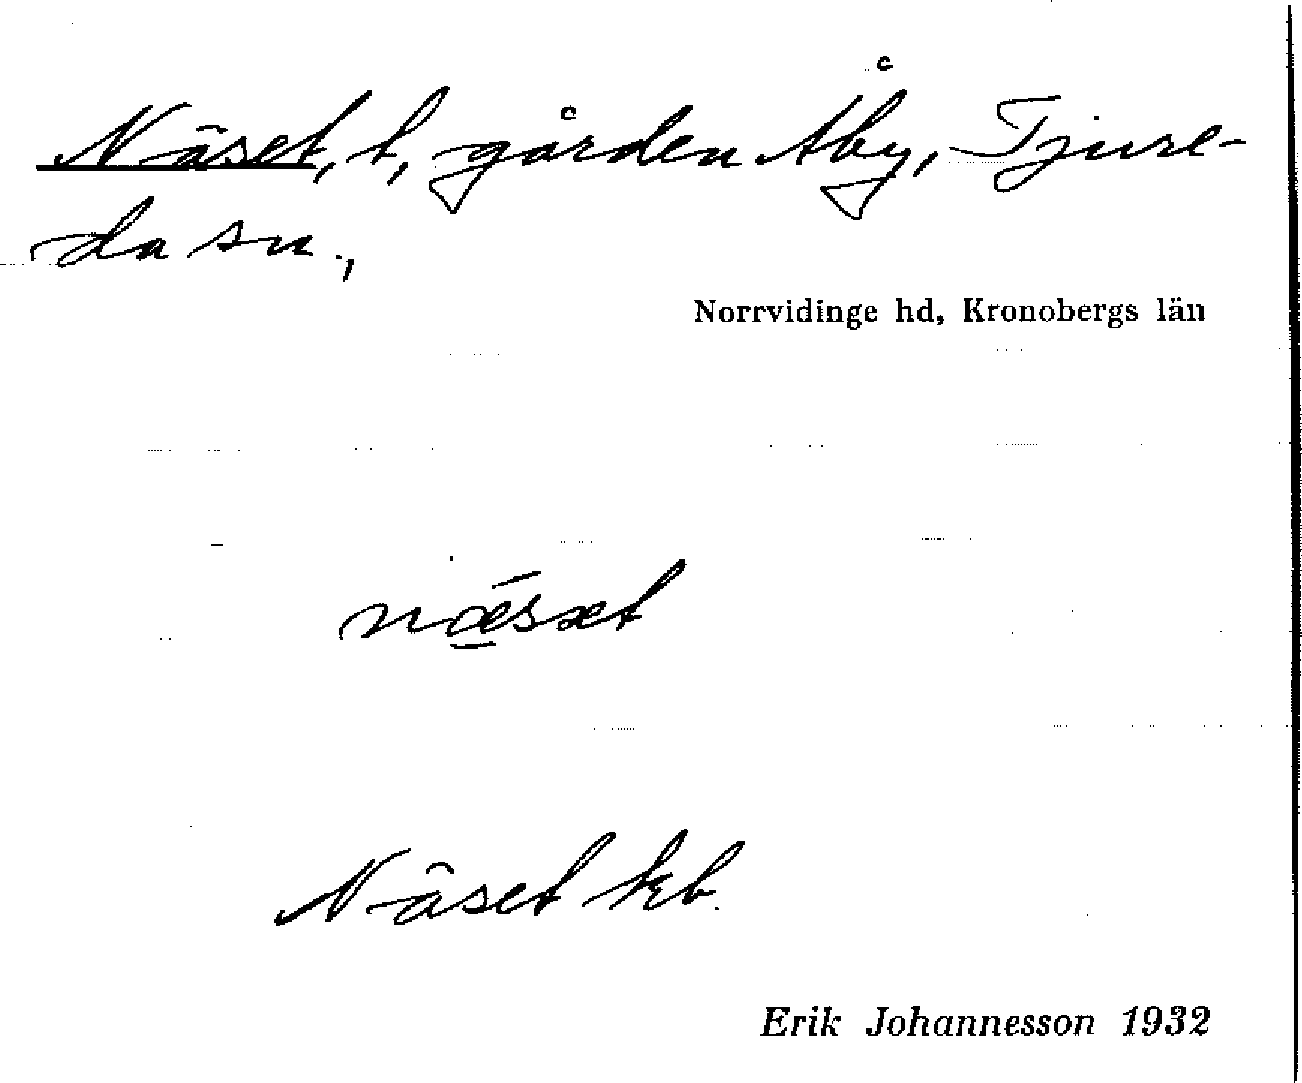 Näset, t, gården Åby, Tjure-
da sn.,
Norrvidinge hd, Kronobergs län
Näset kb.
Erik Johannesson 1932